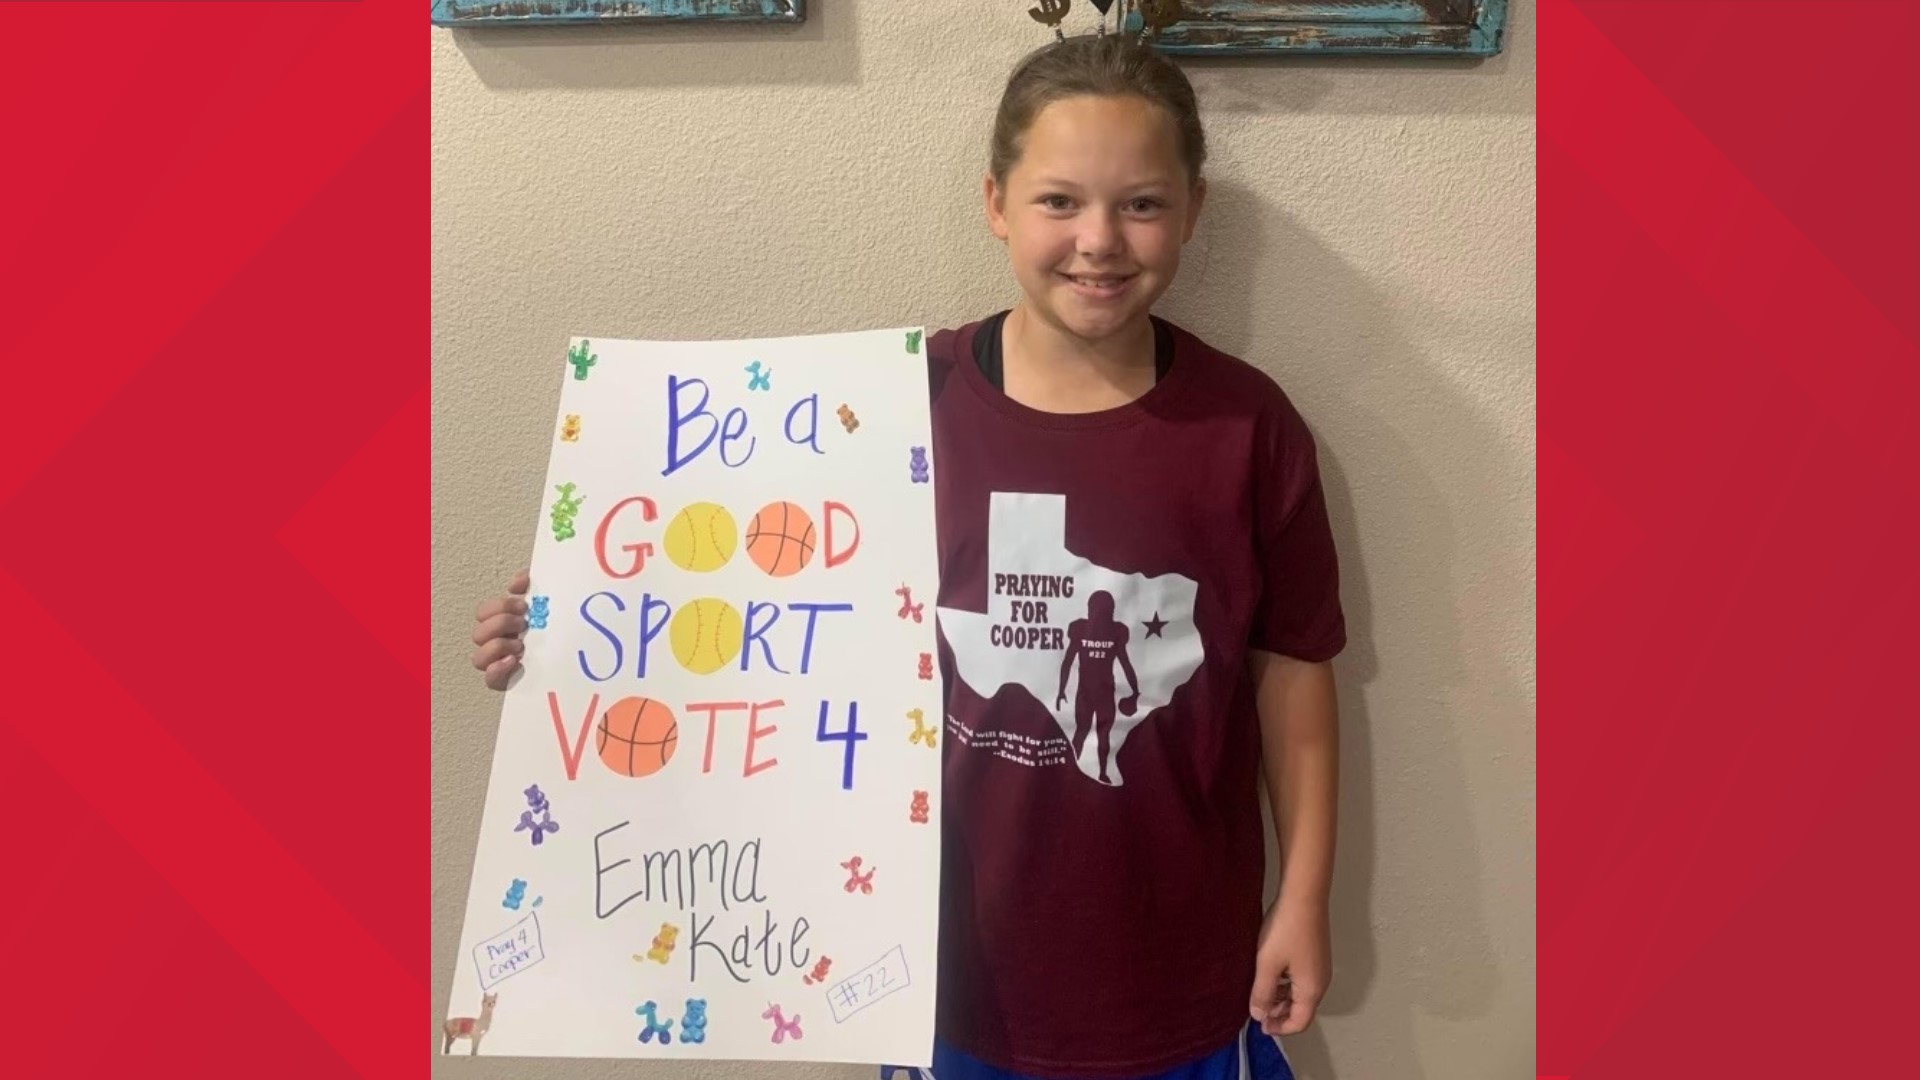 Be a
GOOD
SPORT
VOTE 4
Emma
Kate
Pray 4
Cooper
#22
PRAYING
FOR
COOPER
TROUP
#22
"The Lord will fight for you,
you need to be still."
--Exodus 14:14